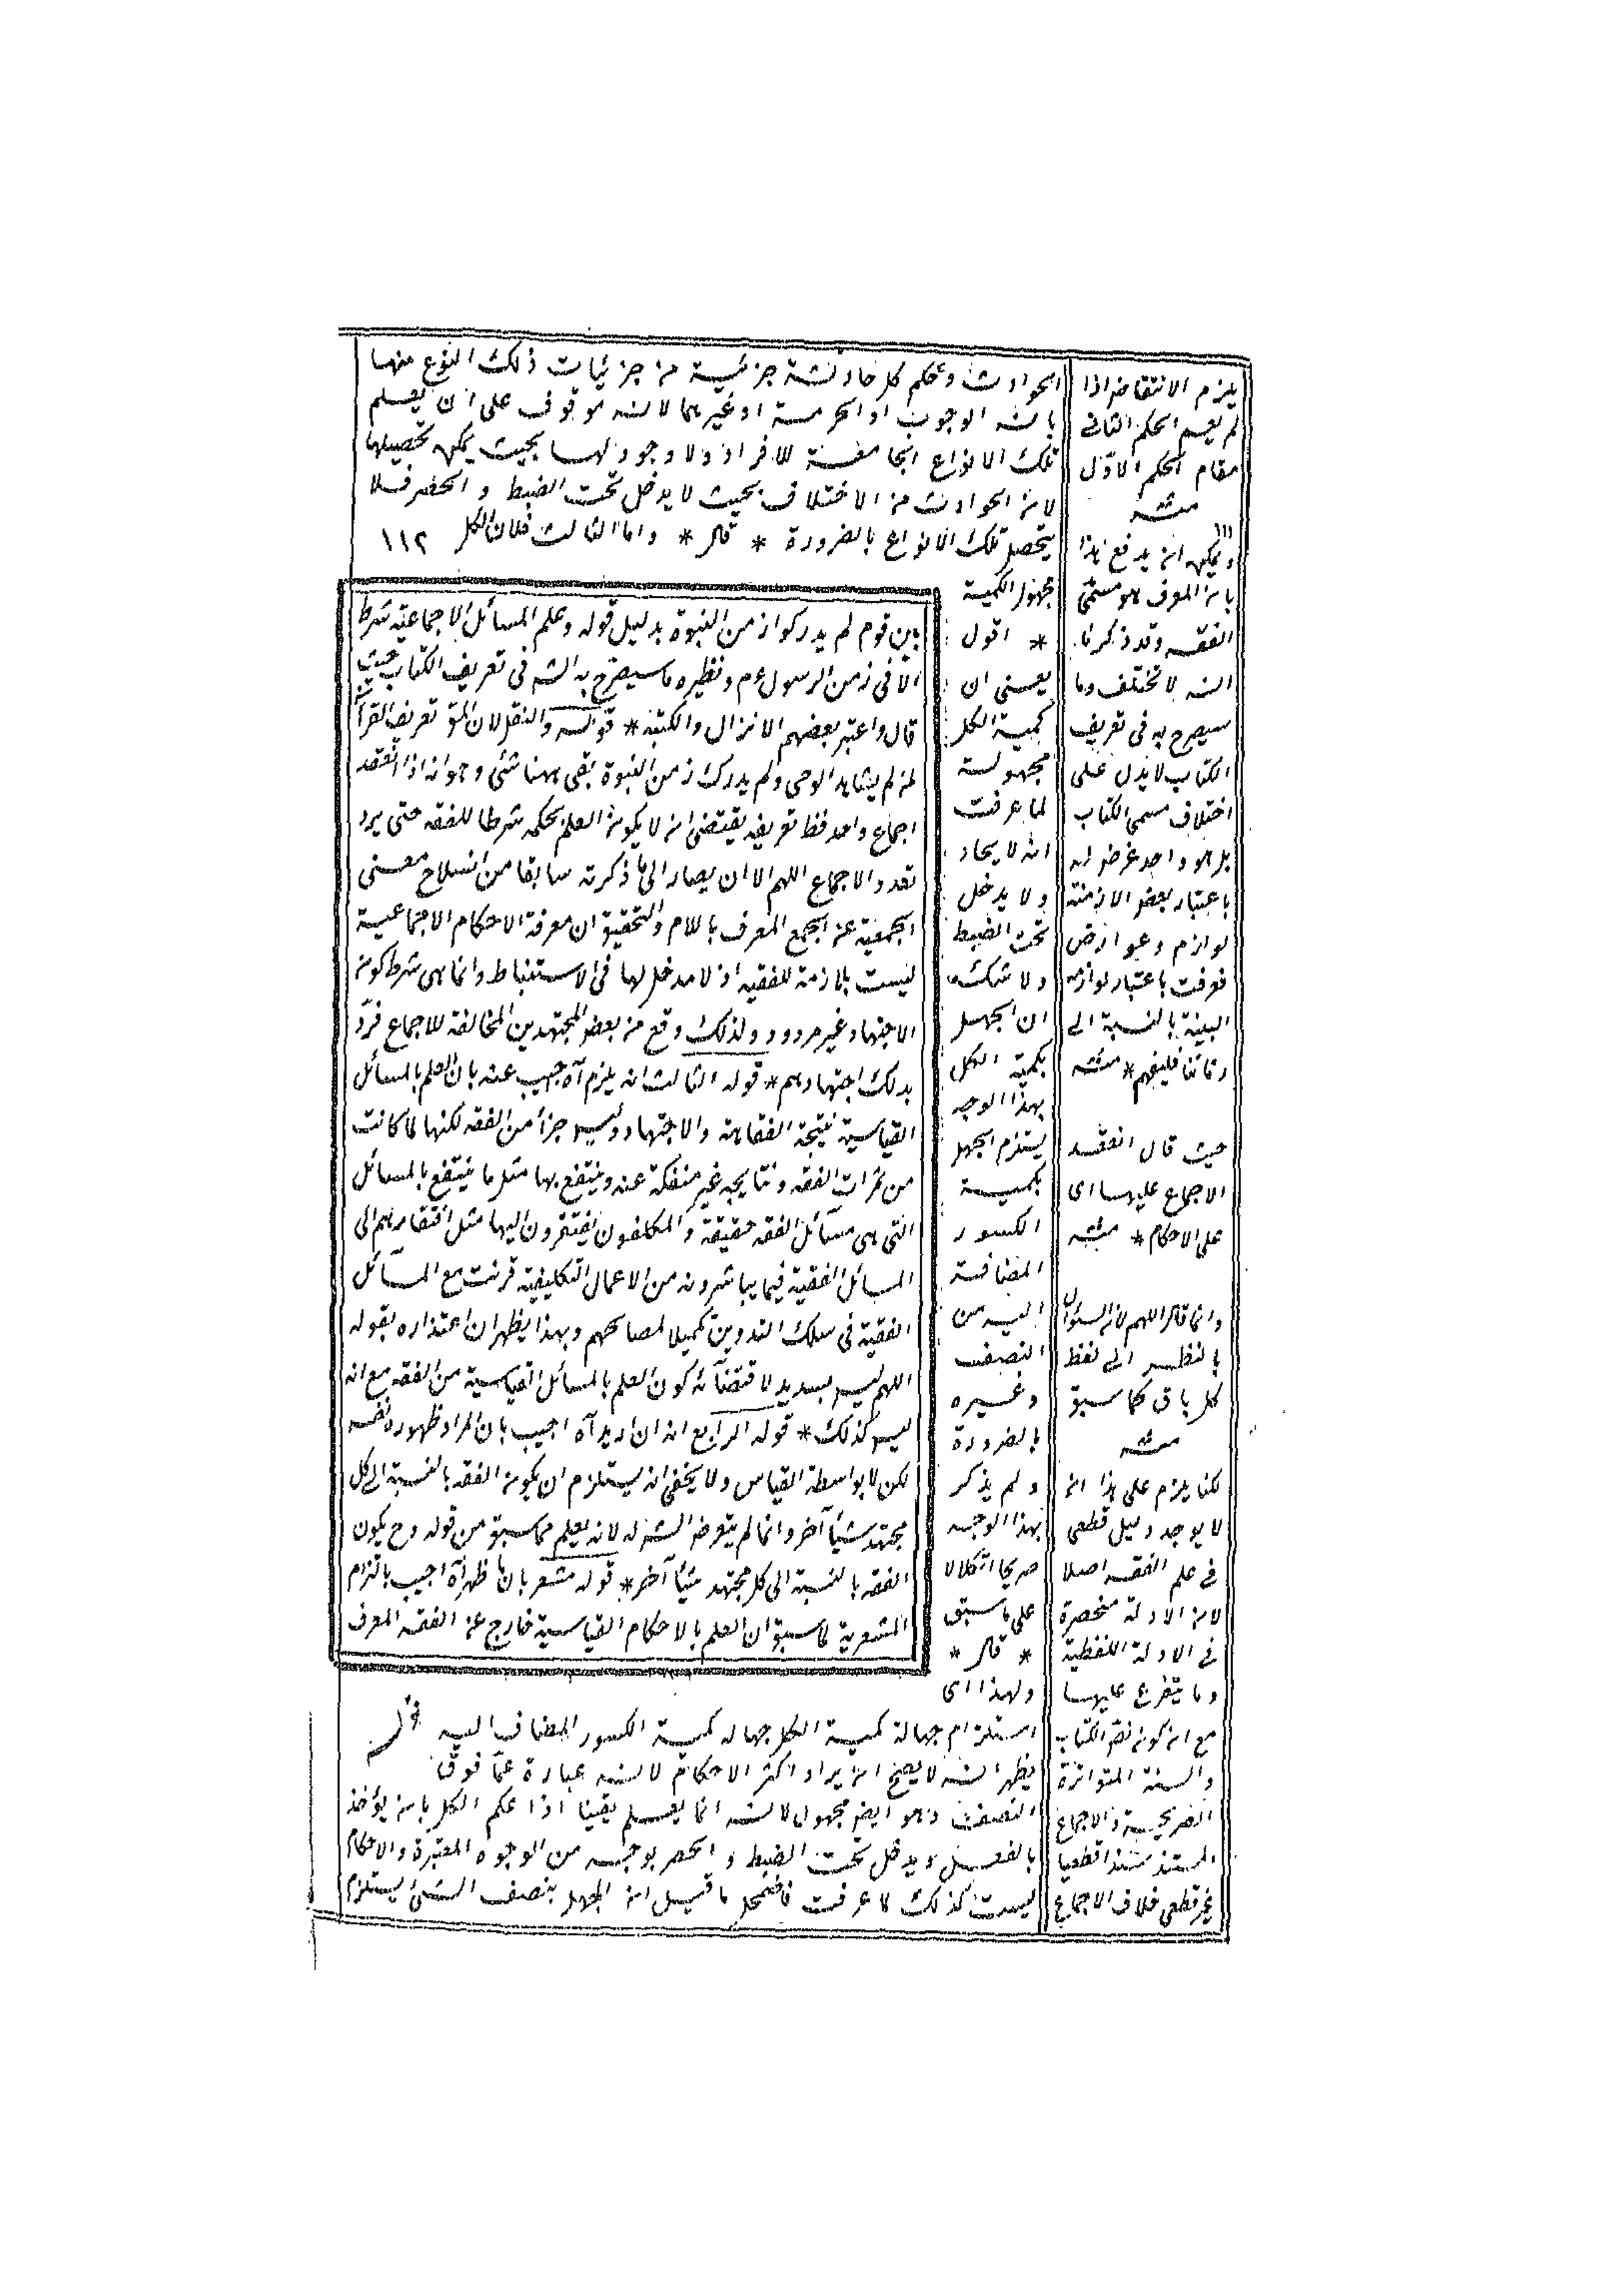 الحوادث وحكم كل حادثة جزئية من جزئيات ذلك النوع منها
بانه الوجوب او الحرمة او غيرهما لانه موقوف على ان يعلم
تلك الانواع الجامعة للافراد ولا وجود لها بحيث يمكن تحصيلها
لان الحوادث من الاختلاف بحيث لا يدخل تحت الضبط و الحصر فلا
يتحصل تلك الانواع بالضرورة * قال * واما الثالث فلان الكل ١١٢
مجهول الكمية
* اقول
يعنى ان
كمية الكل
مجهولة
لما عرفت
انه لا يكاد
ولا يدخل
تحت الضبط
ولا شك
ان الجهل
بكمية الكل
بهذا الوجه
يستلزم الجهل
بكمية
الكسور
المضافة
اليه من
النصف
وغيره
بالضرورة
ولم يذكر
بهذا الوجه
صريحا اتكالا
على ما سبق
* قال *
ولهذا اى
استلزام جهالة كمية الكل جهالة كمية الكسور المضاف اليه
يظهر انه لا يصح ان يراد اكثر الاحكام لانه عبارة عما فوق
النصف وهو ايضا مجهول لانه انما يعلم يقينا اذا علم الكل بان يؤخذ
بالفعل ويدخل تحت الضبط و الحصر بوجه من الوجوه المعتبرة والاحكام
ليست كذلك لما عرفت فاضمحل ما قيل ان الجهل بنصف الشئ يستلزم
باين قوم لم يدركوا زمن النبوة بدليل قوله وعلم المسائل الاجماعية شرط
الا فى زمن الرسول عم ونظيره ما سيصرح به الشه فى تعريف الكتاب حيث
قال واعتبر بعضهم الانزال والكتبة * قوله والنقل لان المق تعريف القرآن
لمن لم يشاهد الوحى ولم يدرك زمن النبوة بقى ههنا شئ وهو انه اذا انعقد
اجماع واحد فقط تعريفه يقتضى ان لا يكون العلم بحكمه شرطا للفقه حتى يرد
تعدد الاجماع اللهم الا ان يصار الى ما ذكرته سابقا من انسلاخ معنى
الجمعية عن الجمع المعرف باللام والتحقيق ان معرفة الاحكام الاجماعية
ليست بلازمة للفقيه اذ لا مدخل لها فى الاستنباط وانما هى شرط كون
الاجتهاد غير مردود ولذلك وقع من بعض المجتهدين المخالفة للاجماع فرد
بذلك اجتهادهم * قوله الثالث انه يلزم آه اجيب عنه بان العلم بالمسائل
القياسية نتيجة الفقاهة والاجتهاد وليس جزأ من الفقه لكنها لما كانت
من ثمرات الفقه ونتايجه غير منفكة عنه وينتفع بها مثل ما ينتفع بالمسائل
التى هى مسائل الفقه حقيقة والمكلفون يفتقرون اليها مثل افتقارهم الى
المسائل الفقهية فيما يباشرونه من الاعمال التكليفية قرنت مع المسائل
الفقهية فى سلك التدوين تكميلا لمصالحهم وبهذا يظهر ان اعتذاره بقوله
اللهم ليس بسديد لاقتضائه كون العلم بالمسائل القياسية من الفقه مع انه
ليس كذلك * قوله الرابع انه ان اريد آه اجيب بان المراد ظهوره نفسه
لكن لا بواسطة القياس ولا يخفى انه يستلزم ان يكون الفقه بالنسبة الى كل
مجتهد شيأ آخر وانما لم يتعرض الشه له لانه يعلم مما سبق من قوله وح يكون
الفقه بالنسبة الى كل مجتهد شيأ آخر * قوله مشعر بان ما ظهر آه اجيب بالتزام
المشعرية لما سبق ان العلم بالاحكام القياسية خارج عن الفقه المعرف
يلزم الانتقاض اذا
لم يعم الحكم الثانى
مقام الحكم الاول
منه
ويمكن ان يدفع هذا
بان المعرف هو مسمى
الفقه وقد ذكرنا
انه لا تختلف وما
سيصرح به فى تعريف
الكتاب لا يدل على
اختلاف مسمى الكتاب
بل هو واحد عرض له
باعتبار بعض الازمنة
لوازم وعوارض
فعرفت باعتبار لوازمه
البينة بالنسبة الى
زماننا فليفهم * منه
حيث قال انعقد
الاجماع عليها اى
على الاحكام * منه
وانما قال اللهم لان السؤال
بالنظر الى لفظ
كل باق كما سبق
منه
لكن يلزم على هذا ان
لا يوجد دليل قطعى
فى علم الفقه اصلا
لان الادلة منحصرة
فى الادلة اللفظية
وما يتفرع عليها
مع ان كون نص الكتاب
والسنة المتواترة
الصريحية والاجماع
المستند سندا قطعيا
غير قطعى خلاف الاجماع